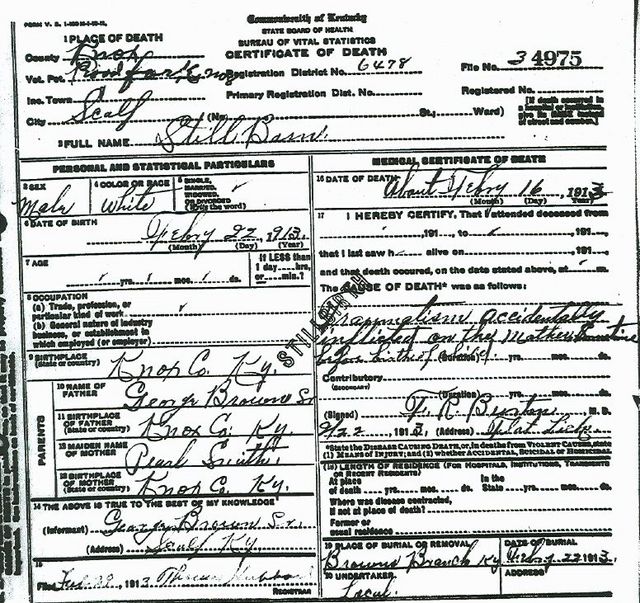 FORM V. S.
Commonwealth of Kentucky
STATE BOARD OF HEALTH
BUREAU OF VITAL STATISTICS
CERTIFICATE OF DEATH
1 PLACE OF DEATH
County Knox
Vot. Pct. Registration District No. 6478 File No. 3 4975
Inc. Town Primary Registration Dist. No. Registered No.
City Scalf (No St.; Ward) [If death occurred in a hospital or institution, give its NAME instead of street and number.]
2 FULL NAME Still Born
PERSONAL AND STATISTICAL PARTICULARS
3 SEX Male
4 COLOR OR RACE White
5 SINGLE, MARRIED, WIDOWED, OR DIVORCED (Write the word)
6 DATE OF BIRTH Febry 22, 1913
(Month) (Day) (Year)
7 AGE yrs. mos. ds.
If LESS than 1 day hrs. or min.?
8 OCCUPATION
(a) Trade, profession, or particular kind of work
(b) General nature of industry business, or establishment in which employed (or employer)
9 BIRTHPLACE (State or country) Knox Co. Ky.
PARENTS
10 NAME OF FATHER George Brown Sr
11 BIRTHPLACE OF FATHER (State or country) Knox Co. Ky
12 MAIDEN NAME OF MOTHER Pearl Smith
13 BIRTHPLACE OF MOTHER (State or country) Knox Co. Ky.
14 THE ABOVE IS TRUE TO THE BEST OF MY KNOWLEDGE
(Informant) George Brown Sr.
(Address) Scalf Ky
15
Filed 1913 Thomas REGISTRAR
MEDICAL CERTIFICATE OF DEATH
16 DATE OF DEATH About Febry 16, 1913
(Month) (Day) (Year)
17 I HEREBY CERTIFY, That I attended deceased from
, 191 , to , 191
that I last saw h alive on , 191
and that death occured, on the date stated above, at m.
The CAUSE OF DEATH* was as follows:
STILLBIRTH
Traumatism accidentally
inflicted on the Mother Sometime
before birth of life.
(Duration) yrs. mos. ds.
Contributory
(SECONDARY)
(Duration) yrs. mos. ds.
(Signed) F. R. Burton M. D.
2/22 1913 (Address) Flat Lick
*State the DISEASE CAUSING DEATH, or, in deaths from VIOLENT CAUSES, state (1) MEANS OF INJURY; and (2) whether ACCIDENTAL, SUICIDAL or HOMICIDAL.
(18) LENGTH OF RESIDENCE (FOR HOSPITALS, INSTITUTIONS, TRANSIENTS OR RECENT RESIDENTS)
At place of death yrs. mos. ds. In the State yrs. mos. ds.
Where was disease contracted, if not at place of death?
Former or usual residence
19 PLACE OF BURIAL OR REMOVAL Browns Branch Ky
DATE OF BURIAL Febry 22 1913
20 UNDERTAKER Local
ADDRESS